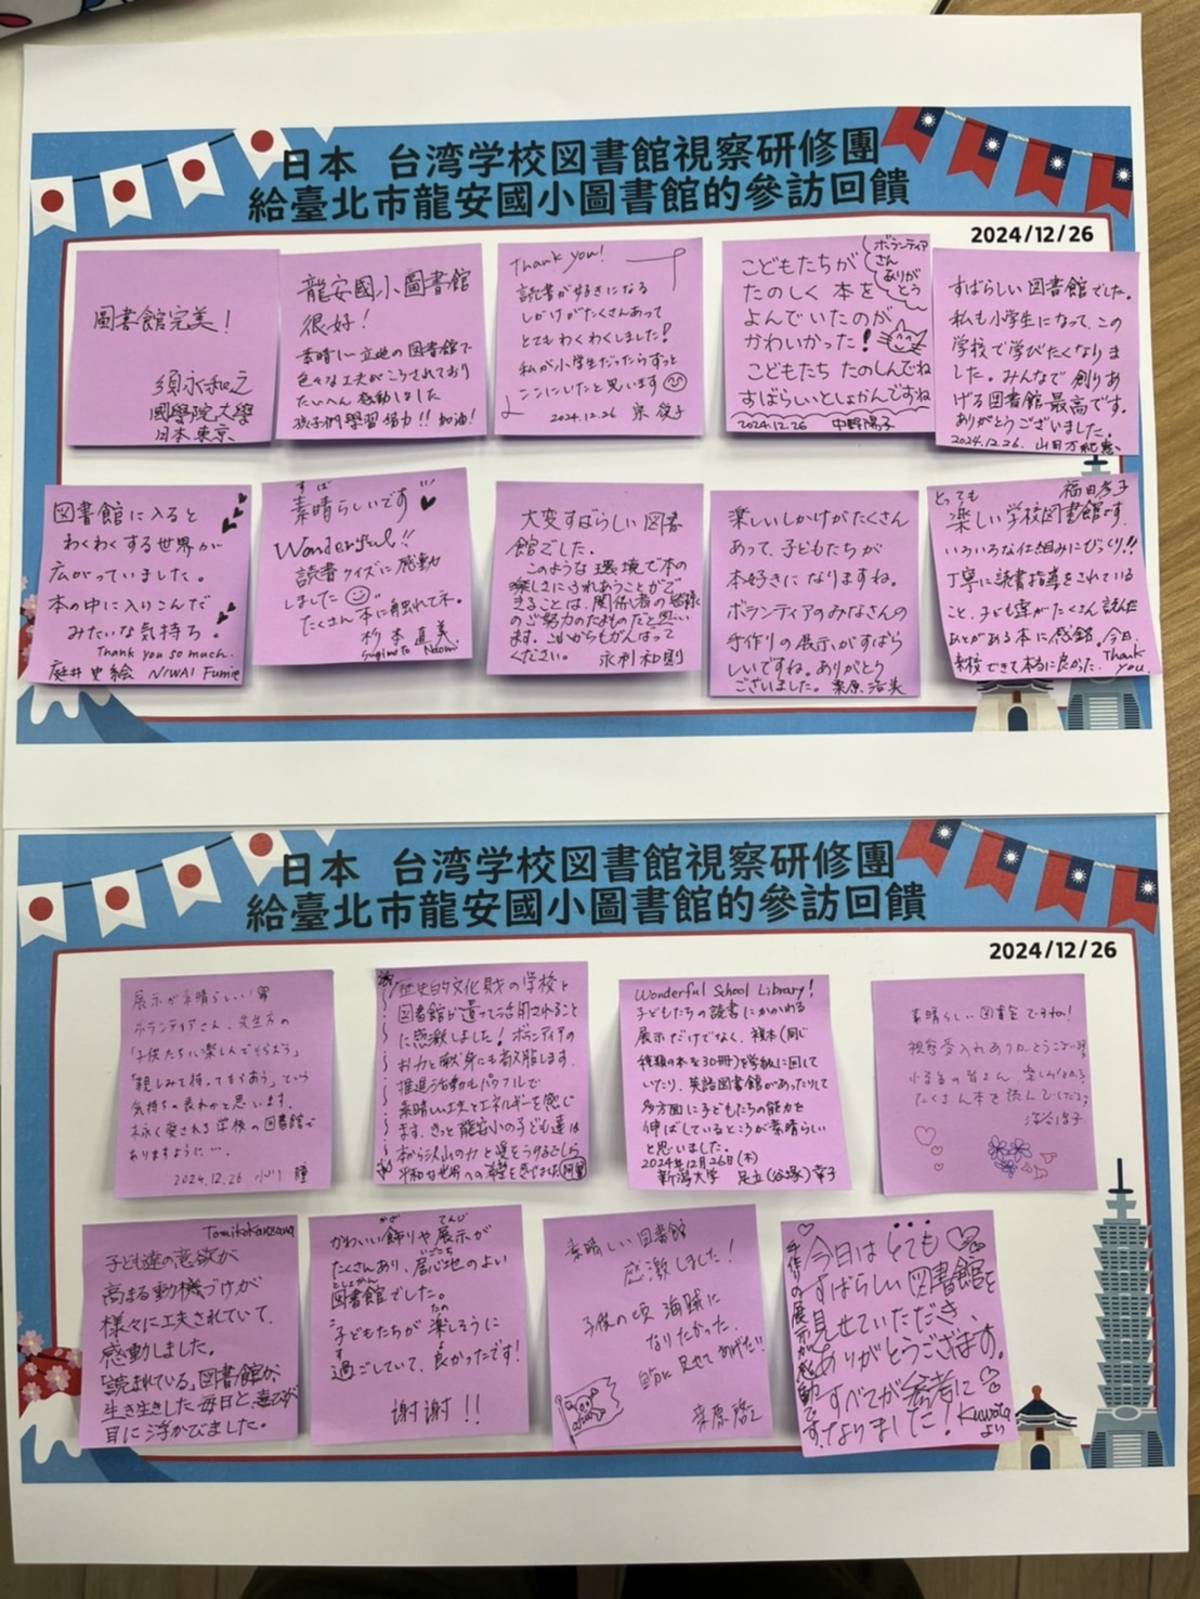 日本 台湾学校図書館視察研修團
給臺北市龍安國小圖書館的參訪回饋
2024/12/26
圖書館完美！
須永和之
國學院大學
日本 東京
龍安國小圖書館
很好！
素晴しい立地の図書館で
色々な工夫がこらされており
たいへん感動しました
孩子們學習努力!! 加油!
Thank you!
読書が好きになる
しかけがたくさんあって
とてもわくわくしました!
私が小学生だったらずっと
ここにいたと思います
2024.12.26
こどもたちが
たのしく 本を
よんでいたのが
かわいかった!
こどもたち たのしんでね
すばらしいとしょかんですね
2024.12.26 中野陽子
ボランティア
さん
ありが
とう
すばらしい図書館でした。
私も小学生になって、この
学校で学びたくなりま
した。みんなで創りあ
げる図書館最高です。
ありがとうございました。
2024.12.26. 山田万紀恵
図書館に入ると
わくわくする世界が
広がっていました。
本の中に入りこんだ
みたいな気持ち。
Thank you so much.
庭井史絵 NIWAI Fumie
すば
素晴らしいです
Wonderful!!
読書クイズに感動
しました
たくさん本に触れてネ。
杉本直美
Sugimoto Naomi
大変すばらしい図書
館でした。
このような環境で本の
楽しさにふれあうことがで
きることは、関係者の皆様
のご努力のたまものだと思い
ます。これからもがんばって
ください。 永利和則
楽しいしかけがたくさん
あって、子どもたちが
本好きになりますね。
ボランティアのみなさんの
手作りの展示がすばら
しいですね。ありがとう
ございました。栗原浩美
福田孝子
とっても
楽しい学校図書館です。
いろいろな仕組みにびっくり!!
丁寧に読書指導をされている
こと、子ども達がたくさん読んだ
あとがある本に感銘。今日、
来校できて本当に良かった。Thank
you.
日本 台湾学校図書館視察研修團
給臺北市龍安國小圖書館的參訪回饋
2024/12/26
展示が素晴らしい!
ボランティアさん、先生方の
「子供たちに楽しんでもらおう」
「親しみを持ってもらおう」という
気持ちの表れかと思います。
末永く愛される学校の図書館で
ありますように…。
2024.12.26 小川 瞳
歴史的文化財の学校と
図書館が
に感激しました! ボランティアの
お力と献身にも
推進活動もパワフルで
素晴しい工夫とエネルギーを感じ
ます。きっと龍安小の子ども達は
本から沢山の力と愛をうけるでしょう
平和な世界への希望を
Wonderful School Library!
子どもたちの読書にかかわる
展示だけでなく、複本(同じ
種類の本を30冊)を学級に回して
いたり、英語図書館があったりして
多方面に子どもたちの能力を
伸ばしているところが素晴らしい
と思いました。
2024年12月26日(木)
新潟大学 足立(谷塚)幸子
素晴らしい図書室ですね!
視察受入れありがとうございます
たくさん本を読んでください
Tomiko Kanzawa
子ども達の意欲が
高まる動機づけが
様々に工夫されていて、
感動しました。
「読まれている」図書館が、
生き生きした毎日と、喜びが
目に浮かびました。
かざ てんじ
かわいい飾りや展示が
いごこち
たくさんあり、居心地のよい
としょかん
図書館でした。
たの
子どもたちが楽しそうに
す よ
過ごしていて、良かったです!
謝謝!!
素晴しい図書館
感激しました!
子供の頃 海賊に
なりたかった。
見せてあげたい!!
今日はとても
すばらしい図書館を
見せていただき、
ありがとうございます。
すべてが参考に
なりました! Kuwata
より
手作りの展示が感動です。